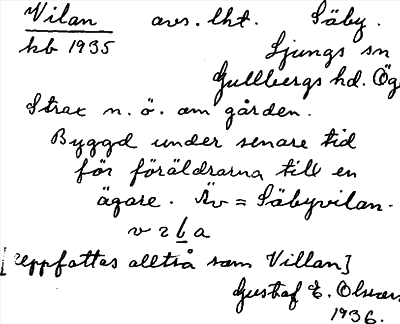 Vilan avs. lht. Säby.
kb 1935 Ljungs sn
Gullbergs hd. Ög
Strax n. ö. om gården.
Byggd under senare tid
för föräldrarna till en
ägare. Äv = Säbyvilan.
[uppfattas alltså som Villan]
Gustaf E.
1936.